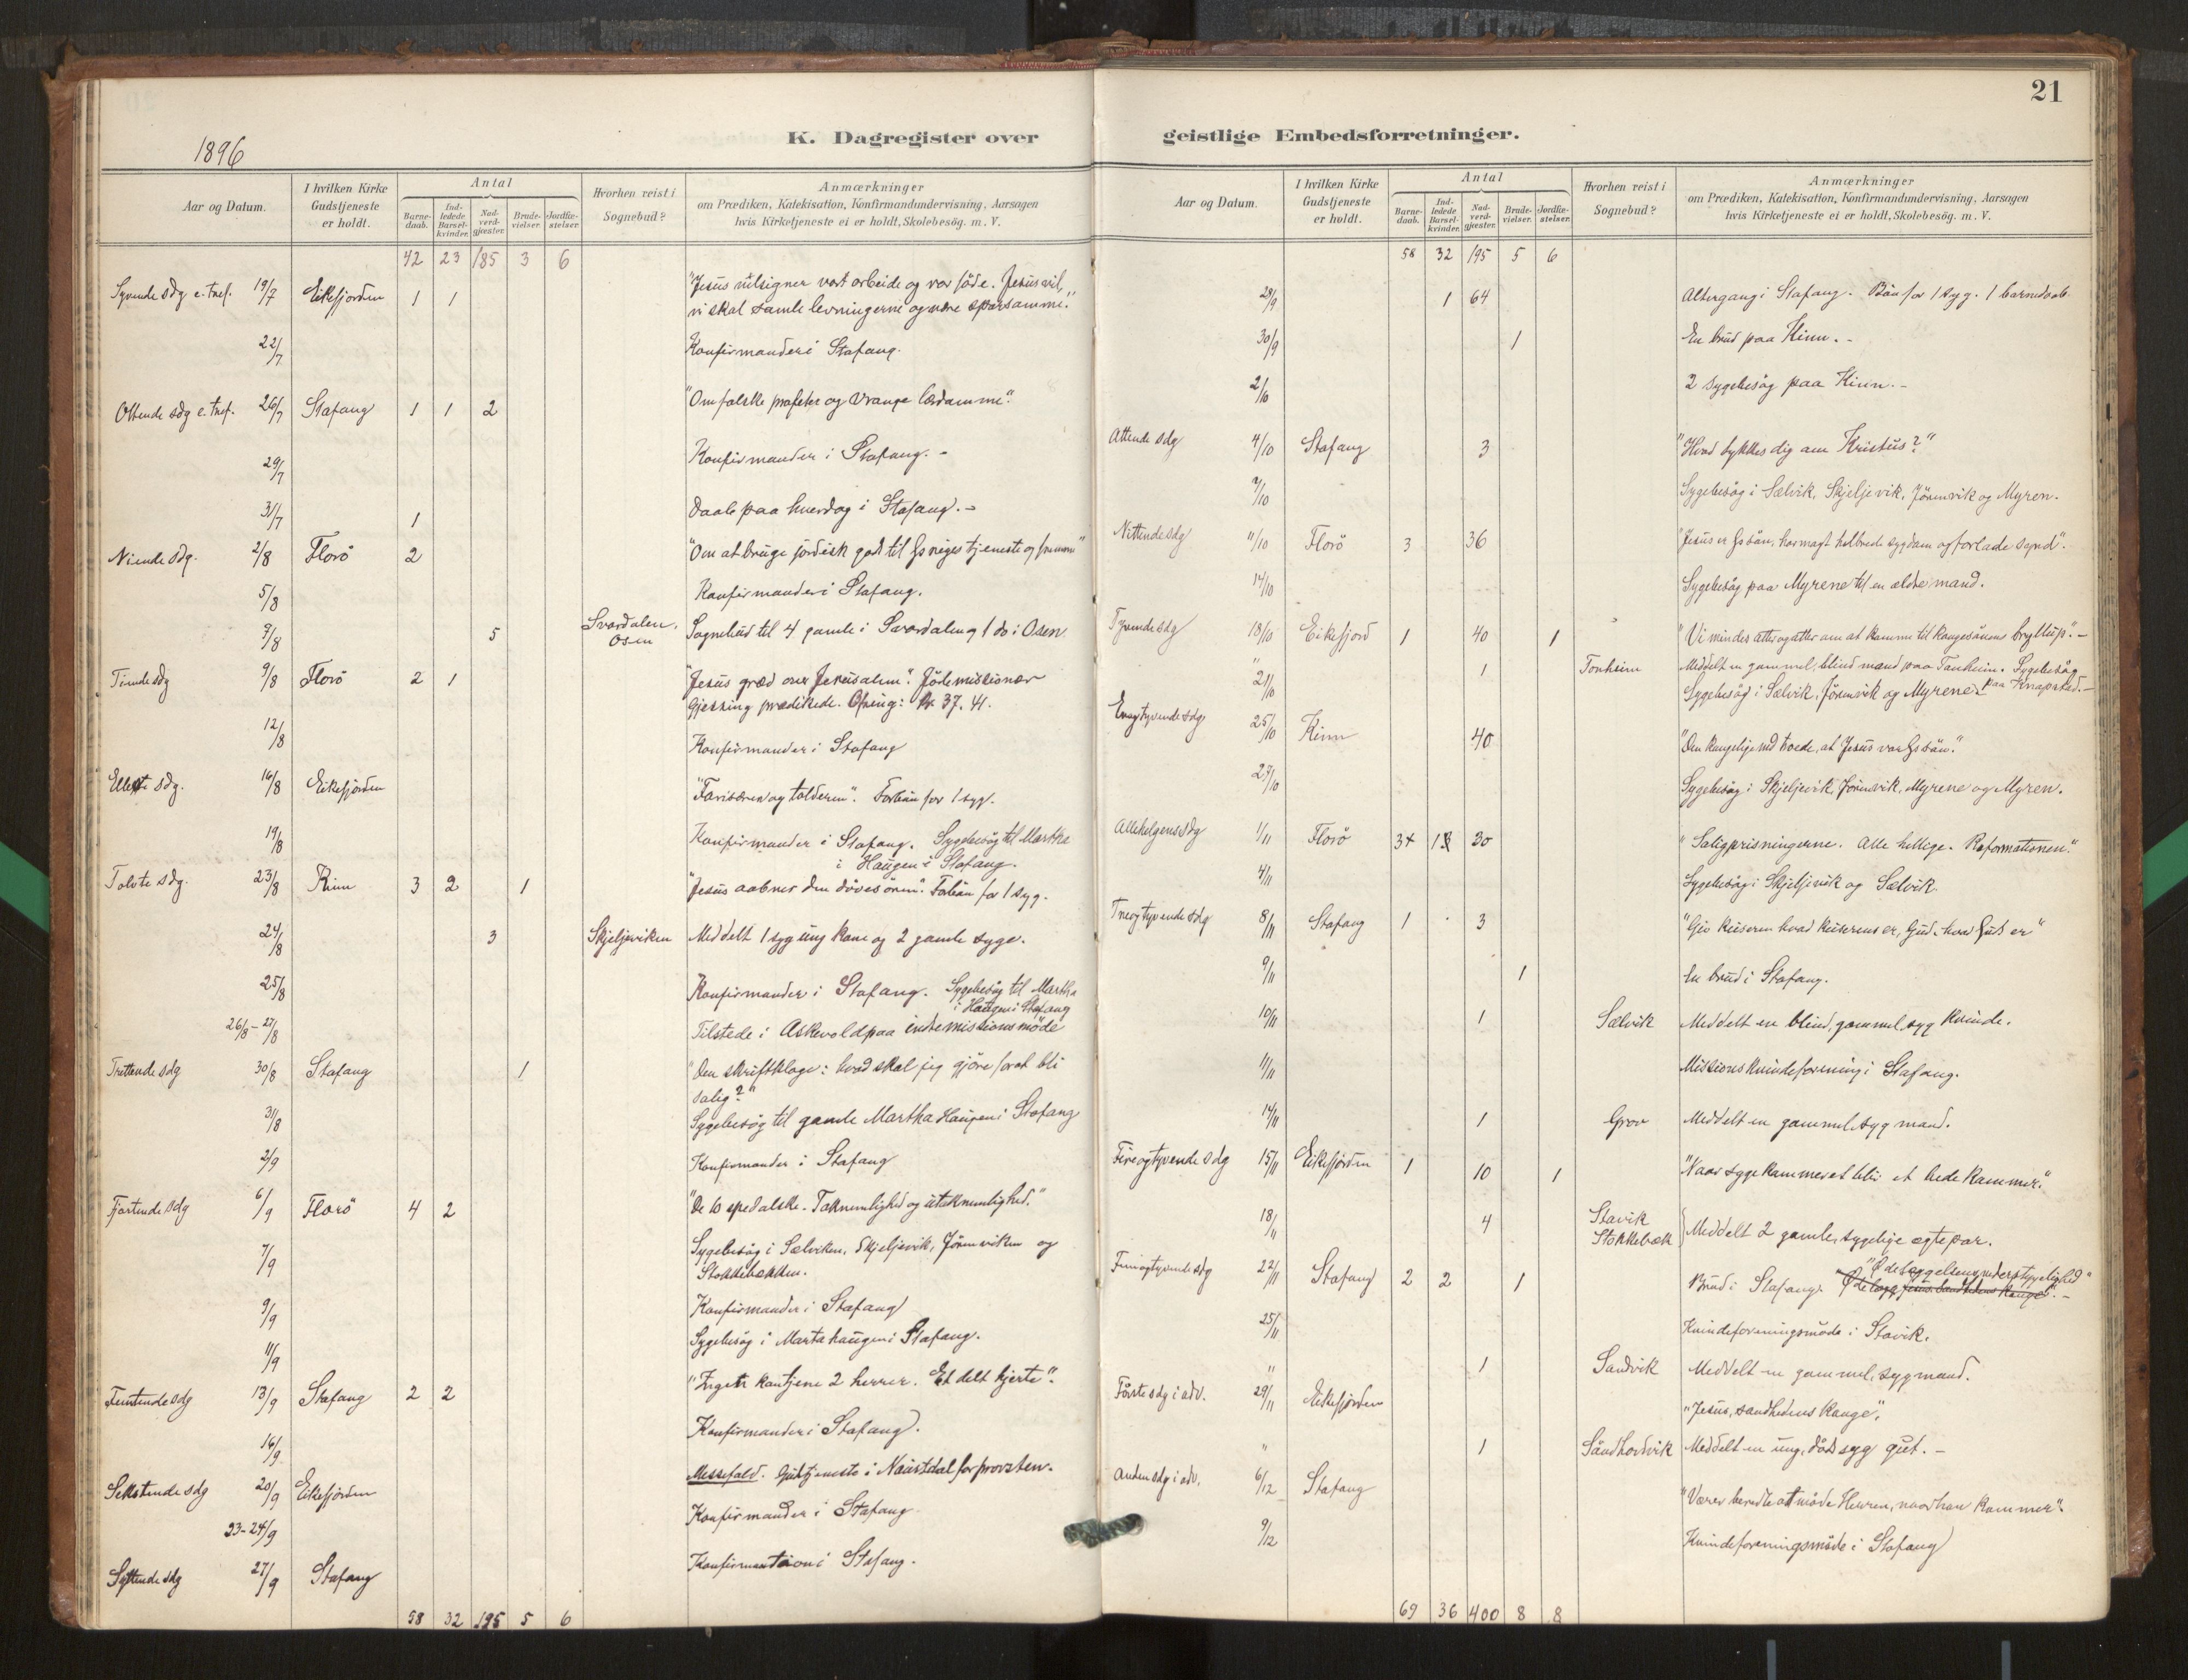 21
K. Dagregister over
geistlige Embedsforretninger.
1896
Aar og Datum.
I hvilken Kirke
Gudstjeneste
er holdt.
Antal
Barne-
daab.
Ind-
ledede
Barsel-
kvinder.
Nad-
verd-
gjæster.
Brude-
vielser.
Jordfæ-
stelser.
Hvorhen reist i
Sognebud?
Anmærkninger
om Prædiken, Katekisation, Konfirmandundervisning, Aarsagen
hvis Kirketjeneste ei er holdt, Skolebesög. m. V.
42 23 185 3 6
Syvende sdg e. tref. 19/7 Eikefjorden 1 1 "Jesus velsigner vort arbeide og vor föde. Jesus vil,
vi skal samle levningerne og være sparsomme."
22/7 Konfirmander i Stafang.
Ottende sdg e. tref. 26/7 Stafang 1 1 2 "Om falske profeter og vrange lærdomme".
29/7 Konfirmander i Stafang. -
31/7 1 Daab paa hverdag i Stafang. -
Niende sdg. 2/8 Florö 2 "Om at bruge jordisk gods til Gs riges tjeneste og fremme"
5/8 Konfirmander i Stafang.
7/8 5 Svardalen, Osen Sognebud til 4 gamle i Svardalen og 1 do i Osen.
Tiende sdg 9/8 Florö 2 1 "Jesus græd over Jerusalem". Jödemissionær
Gjessing prædikede. Ofring: Kr. 37.41.
12/8 Konfirmander i Stafang
Ellevte sdg. 16/8 Eikefjorden "Farisæren og tolderen". Forbön for 1 syg.
19/8 Konfirmander i Stafang. Sygebesög til Martha
i Haugen i Stafang.
Tolvte sdg. 23/8 Kinn 3 2 1 "Jesus aabner den döves ören". Forbön for 1 syg.
24/8 3 Skjeljeviken Meddelt 1 syg ung kone og 2 gamle syge.
25/8 Konfirmander i Stafang. Sygebesög til Martha
i Haugen i Stafang
26/8 - 27/8 Tilstede i Askevold paa indremissionsmöde
Trettende sdg 30/8 Stafang 1 "Den skriftkloge: hvad skal jeg gjöre for at bli
salig?"
31/8 Sygebesög til gamle Martha Haugen i Stafang
2/9 Konfirmander i Stafang
Fjortende sdg 6/9 Florö 4 2 "De 10 spedalske. Taknemlighed og utaknemlighed."
7/9 Sygebesög i Sælviken, Skjeljevik, Jörenviken og
Stokkebækken.
9/9 Konfirmander i Stafang
11/9 Sygebesög i Martahaugen i Stafang.
Femtende sdg 13/9 Stafang 2 2 "Ingen kan tjene 2 herrer. Et delt hjerte".
16/9 Konfirmander i Stafang.
Sekstende sdg 20/9 Eikefjorden Messefald. Gudstjeneste i Naustdal for provsten.
23-24/9 Konfirmander i Stafang
Syttende sdg 27/9 Stafang Konfirmation i Stafang.
58 32 195 5 6
Aar og Datum.
I hvilken Kirke
Gudstjeneste
er holdt.
Antal
Barne-
daab.
Ind-
ledede
Barsel-
kvinder.
Nad-
verd-
gjæster.
Brude-
vielser.
Jordfæ-
stelser.
Hvorhen reist i
Sognebud?
Anmærkninger
om Prædiken, Katekisation, Konfirmandundervisning, Aarsagen
hvis Kirketjeneste ei er holdt, Skolebesög. m. V.
58 32 195 5 6
28/9 1 64 Altergang i Stafang. Bön for 1 syg. 1 barnedaab
30/9 1 En brud paa Kinn. -
2/10 2 sygebesög paa Kinn. -
Attende sdg 4/10 Stafang 3 "Hvad tykkes dig om Kristus?"
7/10 Sygebesög i Sælvik, Skjeljevik, Jörenvik og Myren.
Nittende sdg 11/10 Florö 3 36 "Jesus er Gs sön, har magt helbrede sygdom og forlade synd".
14/10 Sygebesög paa Myrene til en ældre mand.
Tyvende sdg 18/10 Eikefjord 1 40 1 "Vi mindes atter og atter om at komme til kongesönnens bryllup". -
" 1 Tonheim Meddelt en gammel, blind mand paa Tonheim. Sygebesög
paa Knapstad. -
21/10 Sygebesög i Sælvik, Jörenvik og Myrene.
Enogtyvende sdg 25/10 Kinn 40 "Den kongelige md troede, at Jesus var Gs sön."
27/10 Sygebesög i Skjeljevik, Jörenvik, Myrene og Myren.
Allehelgens sdg 1/11 Florö 3 1 30 "Saligprisningerne. Alle hellige. Reformationen."
4/11 Sygebesög i Skjeljevik og Sælvik.
Treogtyvende sdg 8/11 Stafang 1 3 "Giv keiseren hvad keiserens er, Gud, hvad Guds er"
9/11 1 En brud i Stafang.
10/11 1 Sælvik Meddelt en blind, gammel, syg kvinde.
11/11 Missionskvindeforening i Stafang.
14/11 1 Grov Meddelt en gammel, syg mand.
Fireogtyvende sdg 15/11 Eikefjorden 1 10 1 "Naar sygekammeret blir et bedekammer".
18/11 4 Stavik
Stokkebæk Meddelt 2 gamle, sygelige ægtepar.
Femogtyvende sdg 22/11 Stafang 2 2 1 Brud i Stafang. "Ödelæggelsens vederstyggelighed"
25/11 Kvindeforeningsmöde i Stavik.
" 1 Sandvik Meddelt en gammel, syg mand.
Förste sdg i adv. 29/11 Eikefjorden "Jesus, sandhedens konge".
" 1 Sandhovdvik Meddelt en ung, dödssyg gut. -
Anden sdg i adv. 6/12 Stafang "Værer beredte at möde Herren, naar han kommer".
9/12 Kvindeforeningsmöde i Stafang
69 36 400 8 8